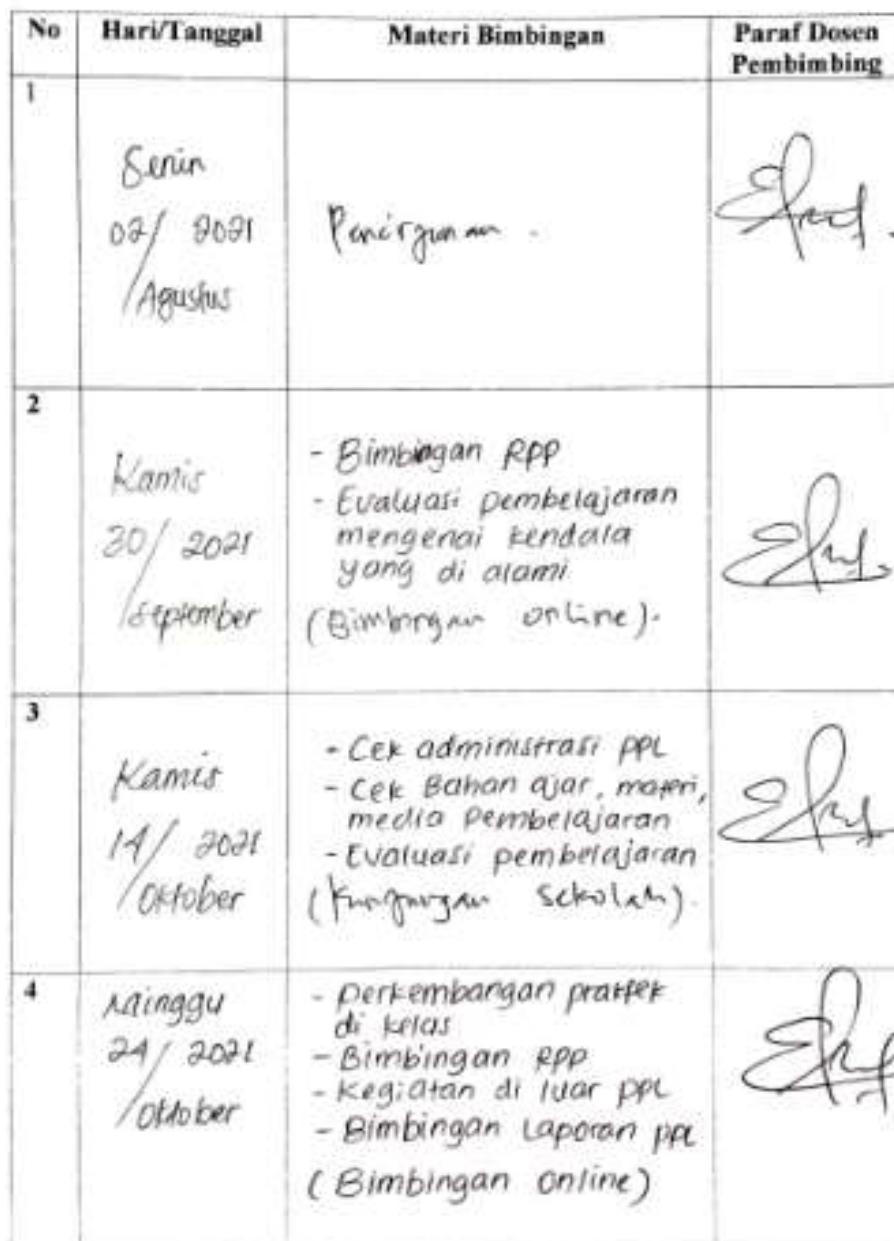 No Hari/Tanggal Materi Bimbingan Paraf Dosen Pembimbing
1
Senin
02/ 2021
/Agustus
2
Kamis
30/ 2021
/September
- Bimbingan RPP
- Evaluasi pembelajaran
mengenai kendala
yang di alami
(Bimbingan online).
3
Kamis
14/ 2021
/Oktober
- Cek administrasi PPL
- Cek Bahan ajar, materi,
media Pembelajaran
- Evaluasi pembelajaran
(Kunjungan Sekolah).
4
Minggu
24/ 2021
/Oktober
- Perkembangan praktek
di kelas
- Bimbingan RPP
- Kegiatan di luar PPL
- Bimbingan Laporan PPL
(Bimbingan online)